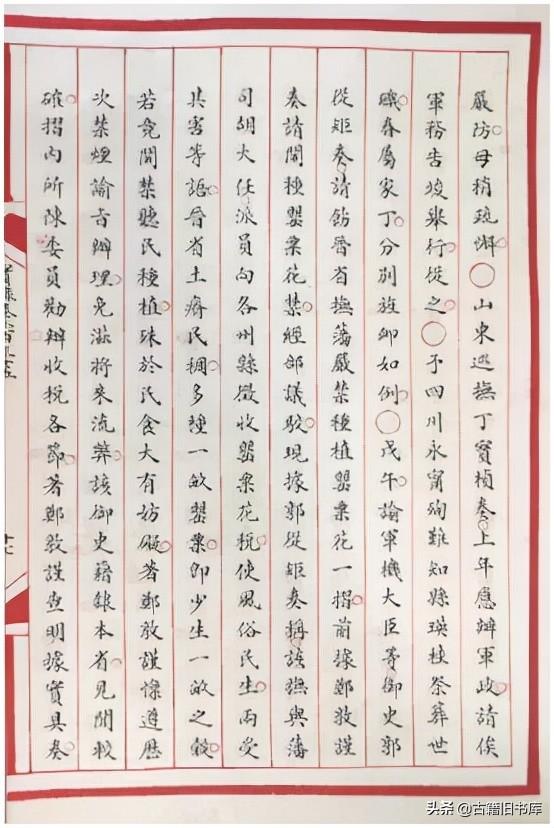 嚴防毋稍疏懈○山東巡撫丁寶楨奏上年應辦軍政請俟
軍務告竣舉行從之○予四川永甯殉難知縣瑛桂祭葬世
職眷屬家丁分別旌卹如例○戊午諭軍機大臣等御史郭
從矩奏請飭晉省撫藩嚴禁種植罌粟花一摺前據鄭敦謹
奏請開種罌粟花禁經部議駁現據郭從矩奏稱該撫與藩
司胡大任派員向各州縣徵收罌粟花稅使風俗民生兩受
其害等語晉省土瘠民稠多種一畝罌粟卽少生一畝之穀
若竟開禁聽民種植殊於民食大有妨礙著鄭敦謹懍遵歷
次禁煙諭旨辦理免滋將來流弊該御史籍隸本省見聞較
確摺內所陳委員勸辦收稅各節著鄭敦謹查明據實具奏
頭条 @古籍旧书库